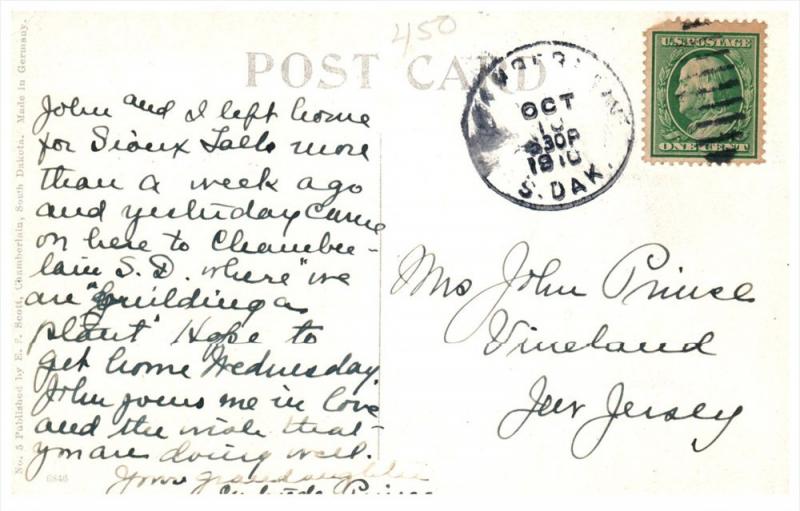 450
POST CARD
U.S. POSTAGE
ONE CENT
OCT
10
1910
S. DAK.
John and I left home
for Sioux Falls more
than a week ago
and yesterday came
on here to Chamber-
lain S. D. where "we
are "building a
plant" Hope to
get home Wednesday.
John joins me in love
and the wish that
you are doing well.
Your granddaughter
Prince
Mrs John Prince
Vineland
New Jersey
No. 5 Published by E. F. Scott, Chamberlain, South Dakota. Made in Germany.